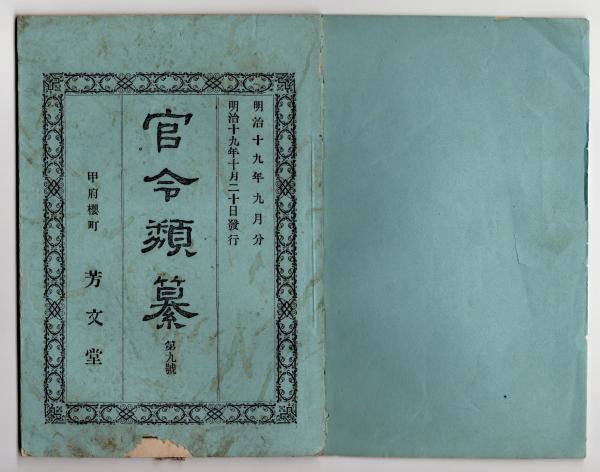 明治十九年九月分
明治十九年十月二十日發行
官令類纂
第九號
甲府櫻町
芳文堂